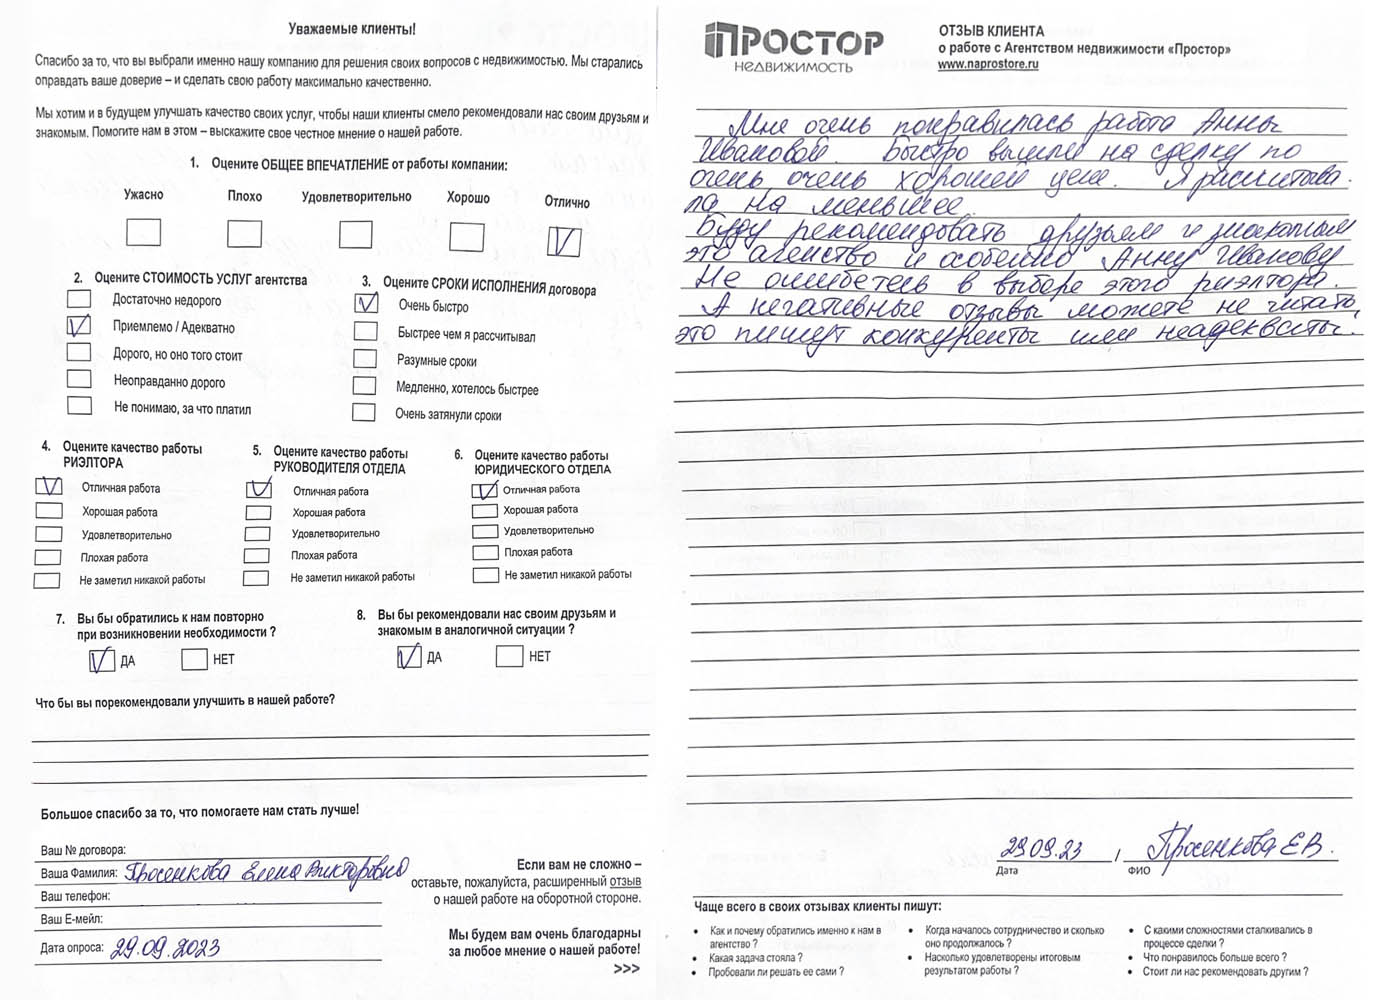 Уважаемые клиенты!
Спасибо за то, что вы выбрали именно нашу компанию для решения своих вопросов с недвижимостью. Мы старались
оправдать ваше доверие – и сделать свою работу максимально качественно.
Мы хотим и в будущем улучшать качество своих услуг, чтобы наши клиенты смело рекомендовали нас своим друзьям и
знакомым. Помогите нам в этом – выскажите свое честное мнение о нашей работе.
1. Оцените ОБЩЕЕ ВПЕЧАТЛЕНИЕ от работы компании:
Ужасно Плохо Удовлетворительно Хорошо Отлично
V
2. Оцените СТОИМОСТЬ УСЛУГ агентства
Достаточно недорого
V Приемлемо / Адекватно
Дорого, но оно того стоит
Неоправданно дорого
Не понимаю, за что платил
3. Оцените СРОКИ ИСПОЛНЕНИЯ договора
V Очень быстро
Быстрее чем я рассчитывал
Разумные сроки
Медленно, хотелось быстрее
Очень затянули сроки
4. Оцените качество работы
РИЭЛТОРА
V Отличная работа
Хорошая работа
Удовлетворительно
Плохая работа
Не заметил никакой работы
5. Оцените качество работы
РУКОВОДИТЕЛЯ ОТДЕЛА
V Отличная работа
Хорошая работа
Удовлетворительно
Плохая работа
Не заметил никакой работы
6. Оцените качество работы
ЮРИДИЧЕСКОГО ОТДЕЛА
V Отличная работа
Хорошая работа
Удовлетворительно
Плохая работа
Не заметил никакой работы
7. Вы бы обратились к нам повторно
при возникновении необходимости ?
V ДА НЕТ
8. Вы бы рекомендовали нас своим друзьям и
знакомым в аналогичной ситуации ?
V ДА НЕТ
Что бы вы порекомендовали улучшить в нашей работе?
Большое спасибо за то, что помогаете нам стать лучше!
Ваш № договора:
Ваша Фамилия: Просенкова Елена Викторовна
Ваш телефон:
Ваш Е-мейл:
Дата опроса: 29.09.2023
Если вам не сложно –
оставьте, пожалуйста, расширенный отзыв
о нашей работе на оборотной стороне.
Мы будем вам очень благодарны
за любое мнение о нашей работе!
>>>
ПРОСТОР
НЕДВИЖИМОСТЬ
ОТЗЫВ КЛИЕНТА
о работе с Агентством недвижимости «Простор»
www.naprostore.ru
Мне очень понравилась работа Анны
Ивановой. Быстро вышли на сделку по
очень очень хорошей цене. Я рассчитыва-
ла на меньшее.
Буду рекомендовать друзьям и знакомым
это агенство и особенно Анну Иванову
Не ошибетесь в выборе этого риэлтора.
А негативные отзывы можете не читать,
это пишут конкуренты или неадекваты.
29.09.23 / Просенкова Е В.
Дата ФИО
Чаще всего в своих отзывах клиенты пишут:
• Как и почему обратились именно к нам в
агентство ?
• Какая задача стояла ?
• Пробовали ли решать ее сами ?
• Когда началось сотрудничество и сколько
оно продолжалось ?
• Насколько удовлетворены итоговым
результатом работы ?
• С какими сложностями сталкивались в
процессе сделки ?
• Что понравилось больше всего ?
• Стоит ли нас рекомендовать другим ?